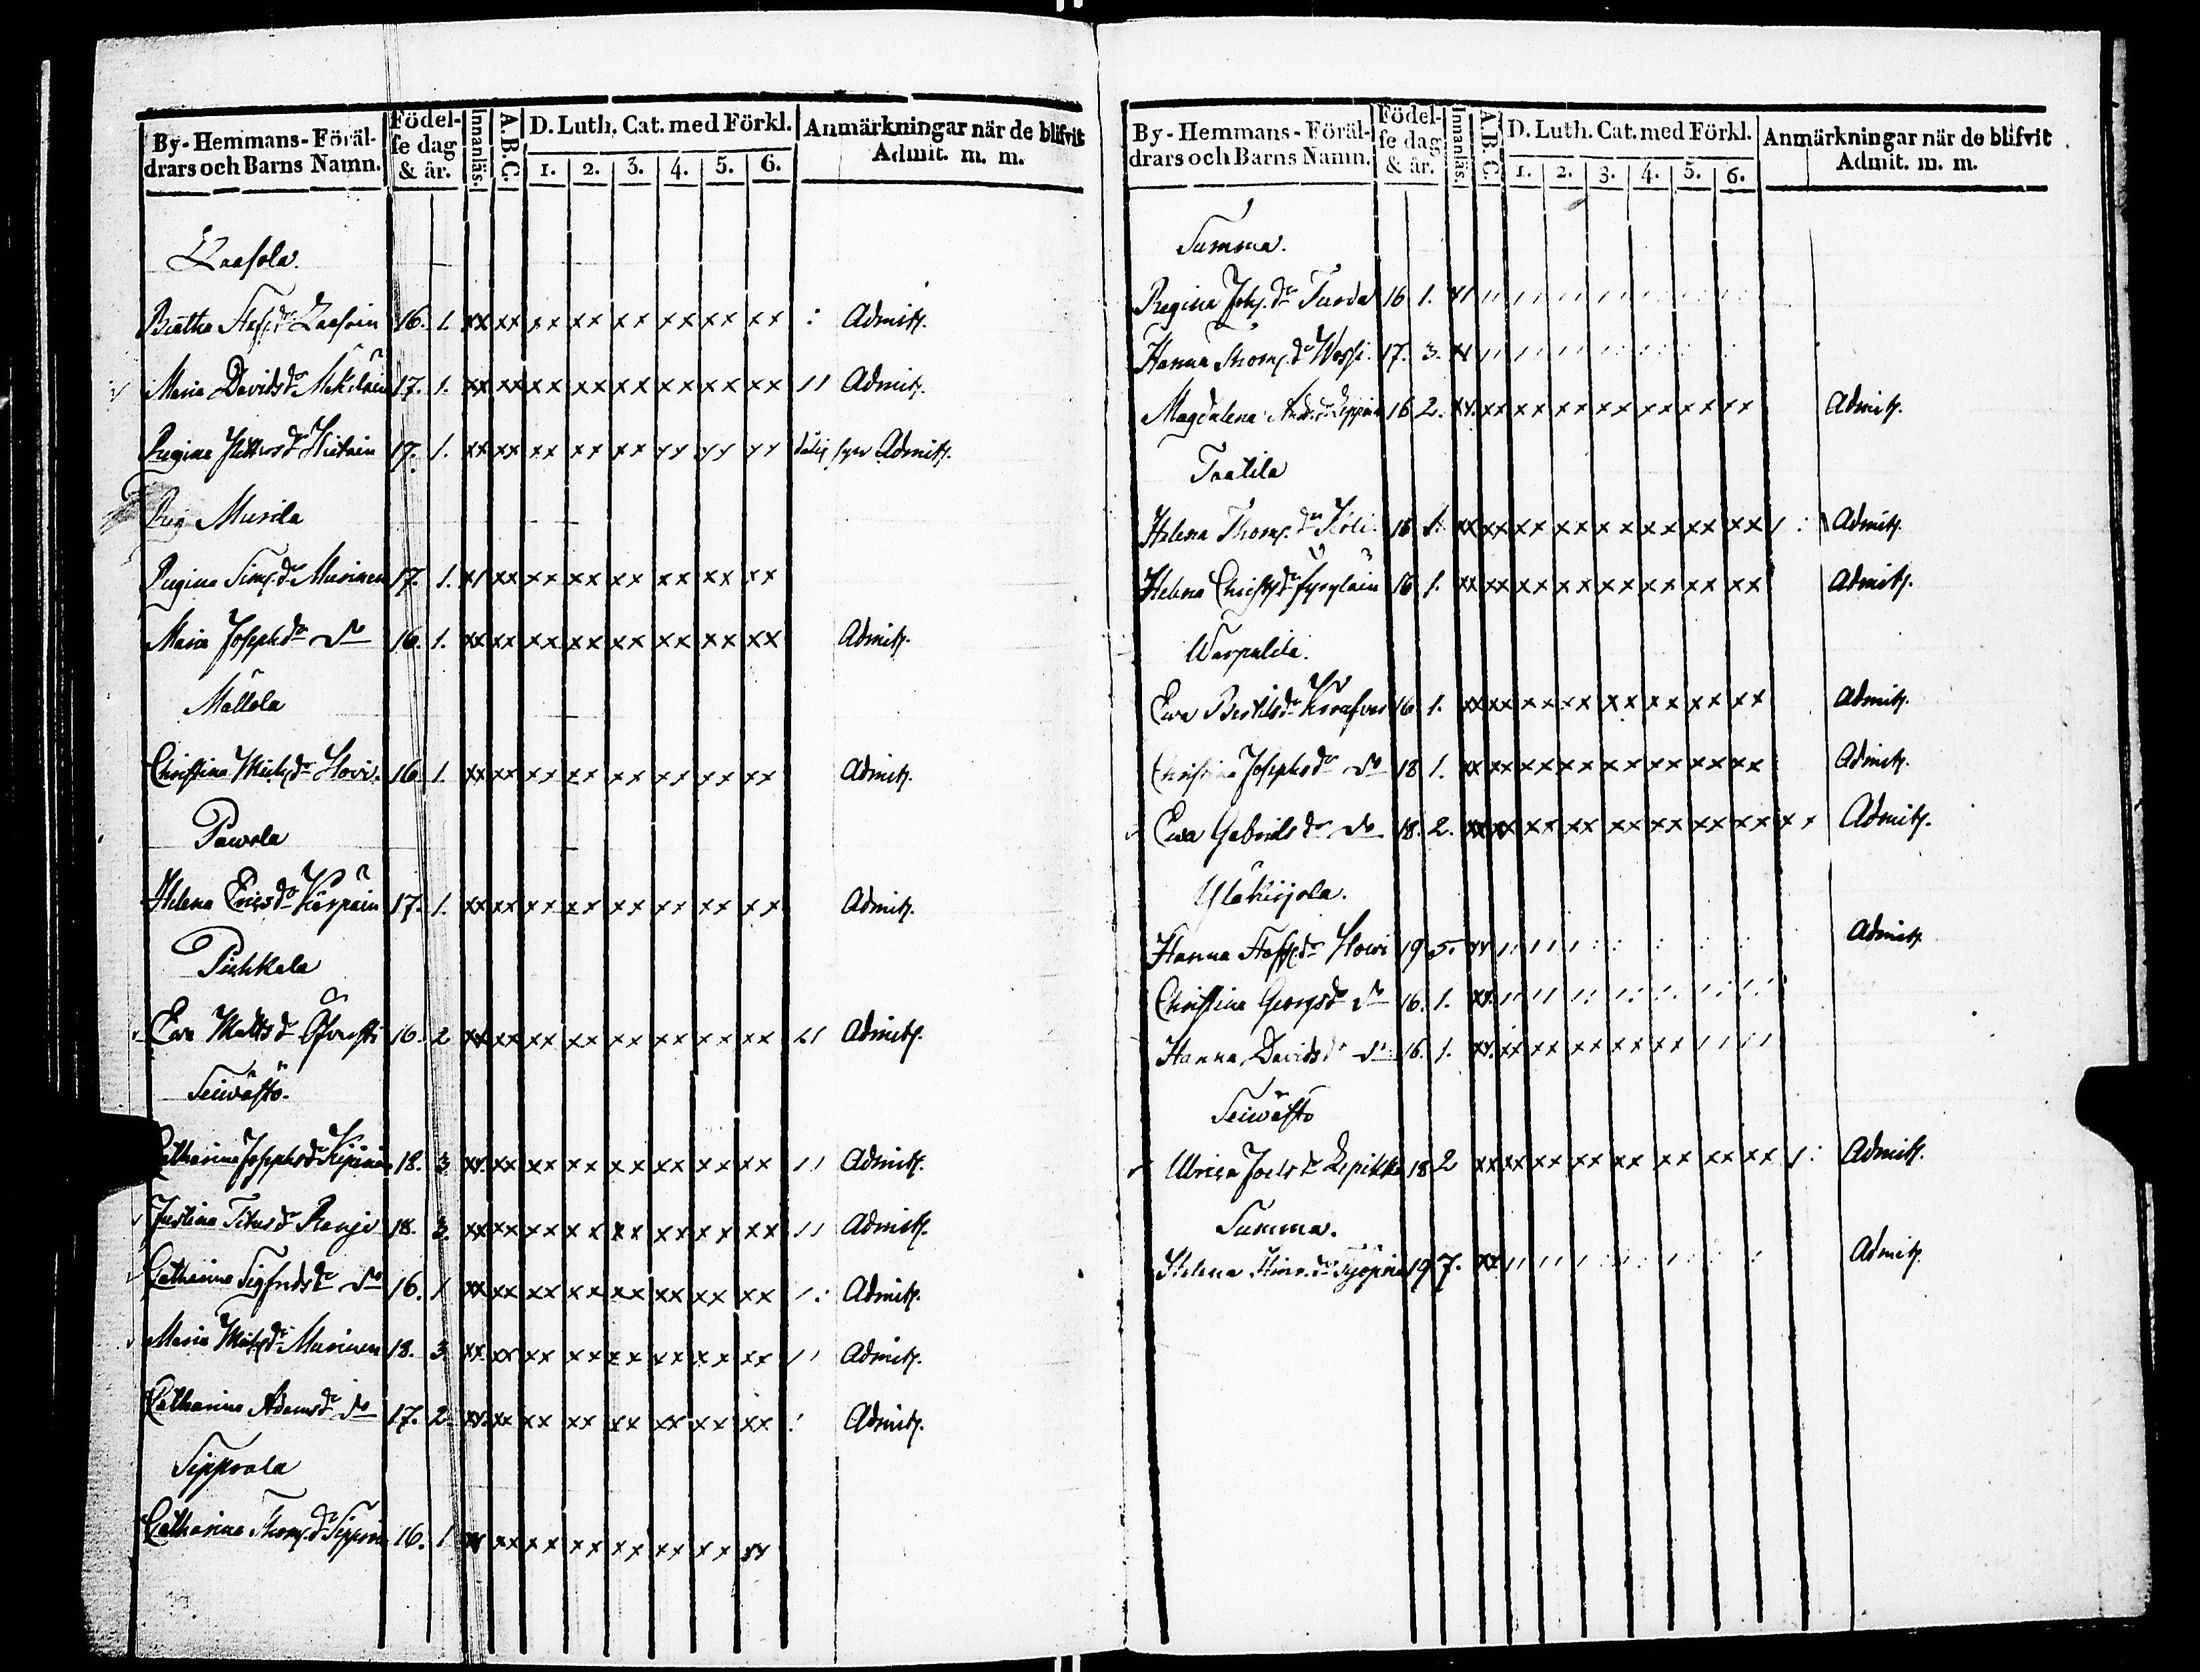 By-Hemmans-Föräl-
drars och Barns Namn.
Födel-
se dag
& år.
Innanläs.
A.B.C.
D. Luth. Cat. med Förkl.
1. 2. 3. 4. 5. 6.
Anmärkningar när de blifvit
Admit. m. m.
16. 1. xx xx xx xx xx xx xx xx : Admitt.
Maria Davidsdr 17. 1. xx xx xx xx xx xx xx xx 11 Admitt.
Regina Pettersdr Hietain 17. 1. xx xx xx xx xx xx xx xx Admitt.
Musila
Regina Simsdr Musinen 17. 1. xx xx xx xx xx xx xx xx
Maria Josephdr Do 16. 1. xx xx xx xx xx xx xx xx Admitt.
Mällola
Christina Michsdr Howi 16 1. xx xx xx xx xx xx xx xx Admitt.
Pawola
Helena Ericsdr Kärpäin 17. 1. xx xx xx xx xx xx xx xx Admitt.
Pihkala
Ewa Mattsdr 16. 2 xx xx xx xx xx xx xx xx 11 Admitt.
Seiwästö.
Catharina Josephsdr 18. 3 xx xx xx xx xx xx xx xx 11 Admitt.
Justina Titusdr Ranji 18. 3. xx xx xx xx xx xx xx xx 11 Admitt.
Catharina Sigfridsdr Do 16. 1 xx xx xx xx xx xx xx xx 1: Admitt.
Maria Michsdr Musinen 18. 3 xx xx xx xx xx xx xx xx 11 Admitt.
Catharina Adamsdr Do 17. 2. xx xx xx xx xx xx xx xx : Admitt.
Sipprola
Catharina Thomsdr 16. 1 xx xx xx xx xx xx xx xx
By-Hemmans-Föräl-
drars och Barns Namn.
Födel-
se dag
& är.
Innanläs.
A.B.C.
D. Luth. Cat. med Förkl.
1. 2. 3. 4. 5. 6.
Anmärkningar när de blifvit
Admit. m. m.
Summa.
Regina Johsdr 16 1.
Hanna Thomsdr 17. 3.
Magdalena Andrdr 16 2. xx xx xx xx xx xx xx xx Admitt.
Taalila
Helena Thomsdr 1. xx xx xx xx xx xx xx xx Admitt.
Helena Christsdr 16 1. xx xx xx xx xx xx xx xx Admitt.
Warpulila.
Ewa Bertilsdr 16 1. xx xx xx xx xx xx xx xx Admitt.
Christina Josephsdr Do 18 1. xx xx xx xx xx xx xx xx Admitt.
Ewa Gabrielsdr Do 18. 2. xx xx xx xx xx xx xx xx xx Admitt.
Yläkirjola.
Hanna Staffsdr Howi 19 5. Admitt
Christina Georgsdr Do 16. 1.
Hanna Davidsdr Do 16. 1.
Seiwästö
Ulrica Joelsdr 18 2 xx xx xx xx xx xx xx xx 1: Admitt.
Summa.
Helena Hinrdr 19 7. Admitt.